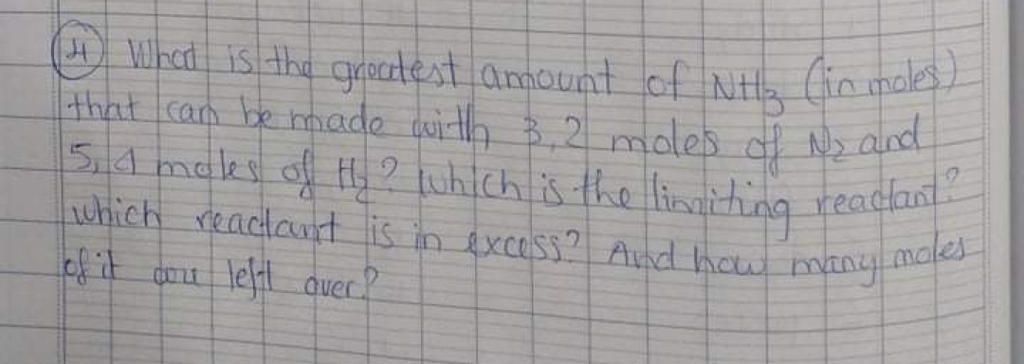 4) What is the greatest amount of NH3 (in moles)
that can be made with 3,2 moles of N2 and
5,4 moles of H2? which is the limiting reactant?
which reactant is in excess? And how many moles
of it are left over?